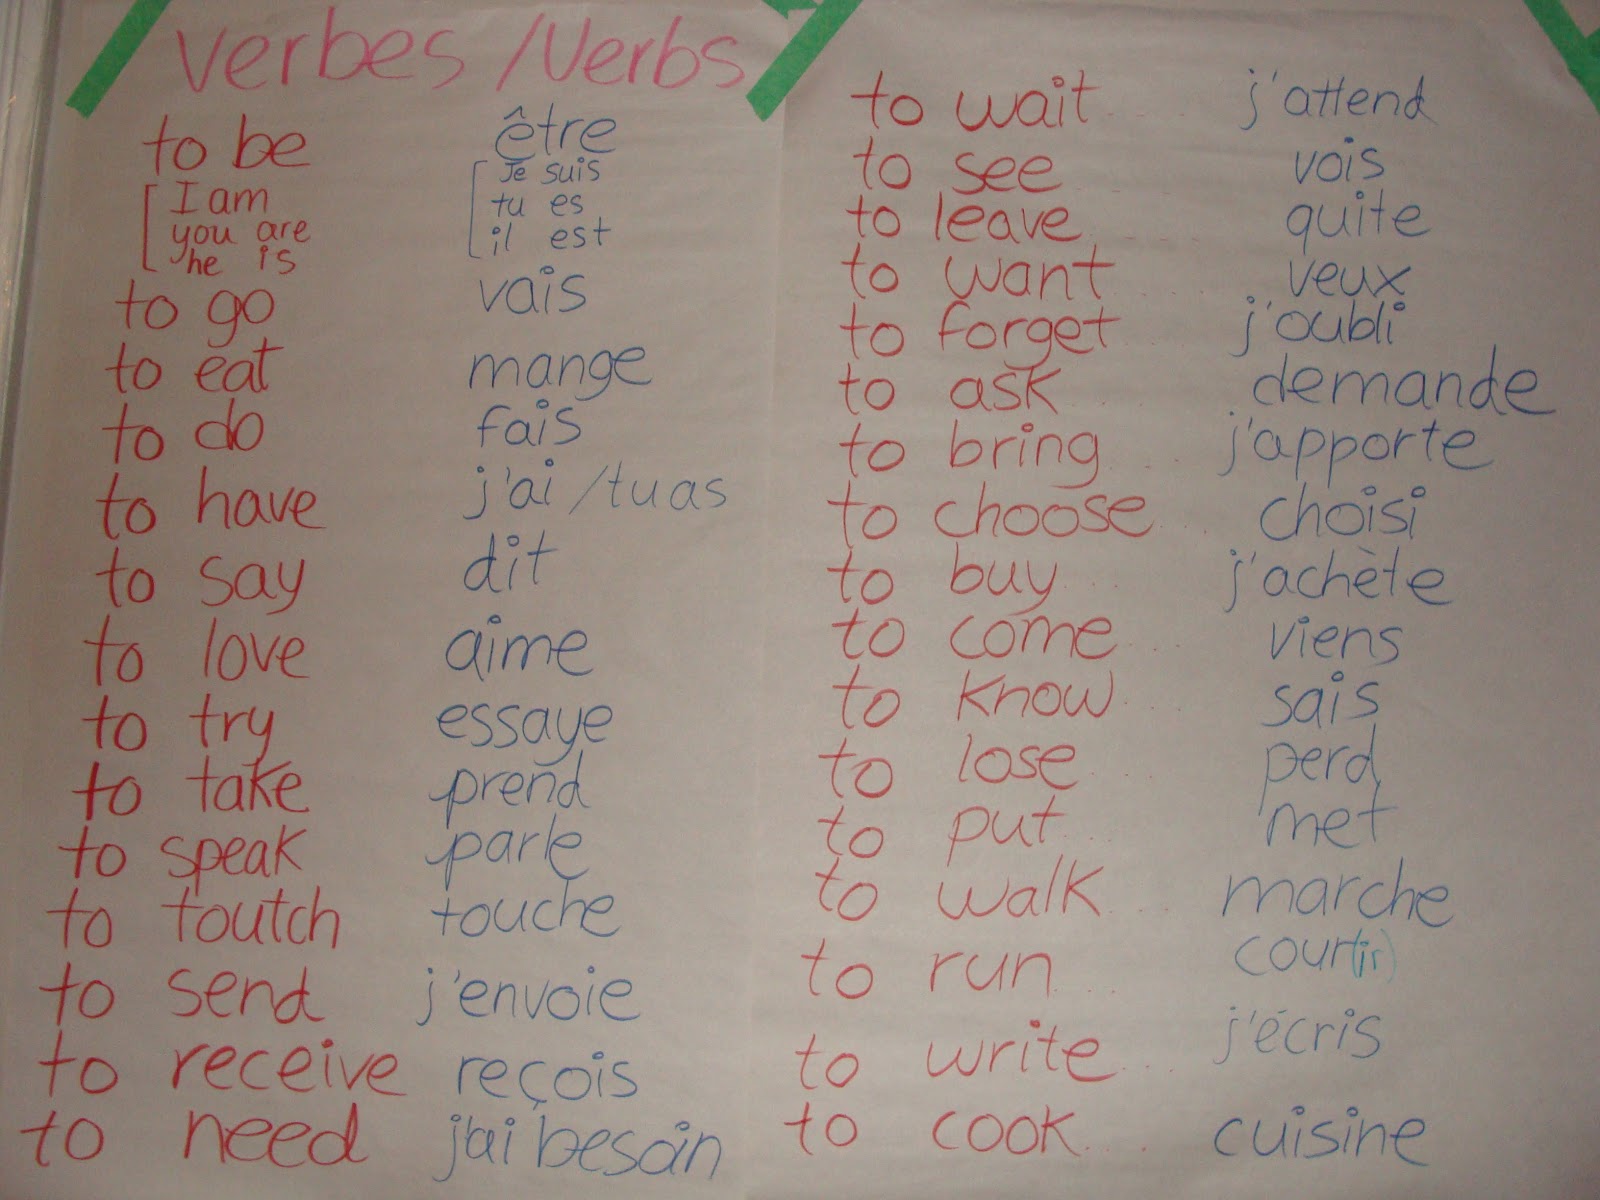 verbes / Verbs
to be être
I am Je suis
you are tu es
he is il est
to go vais
to eat mange
to do fais
to have j'ai / tu as
to say dit
to love aime
to try essaye
to take prend
to speak parle
to toutch touche
to send j'envoie
to receive reçois
to need j'ai besoin
to wait j'attend
to see vois
to leave quite
to want veux
to forget j'oubli
to ask demande
to bring j'apporte
to choose choisi
to buy j'achète
to come viens
to know sais
to lose perd
to put met
to walk marche
to run cour(ir)
to write j'écris
to cook cuisine